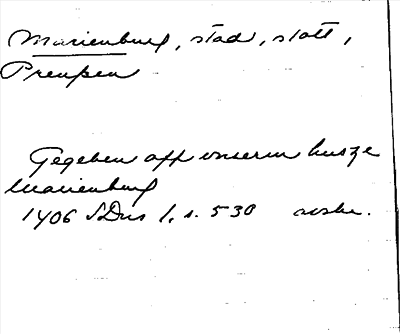 Marienburg, stad, slott,
Preuſsen
Gegeben aff unserm husze
Marienburg
1406 SDns 1, s. 530